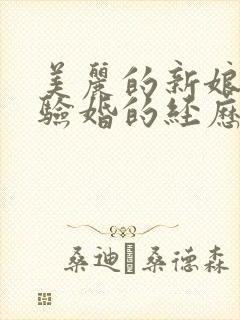 美麗的新娘
驗婚的経歷
桑迪·桑德森